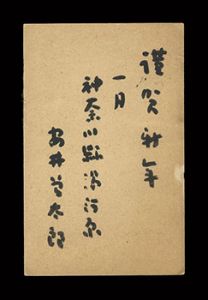 謹賀新年
一月
神奈川縣湯河原
安井曾太郎